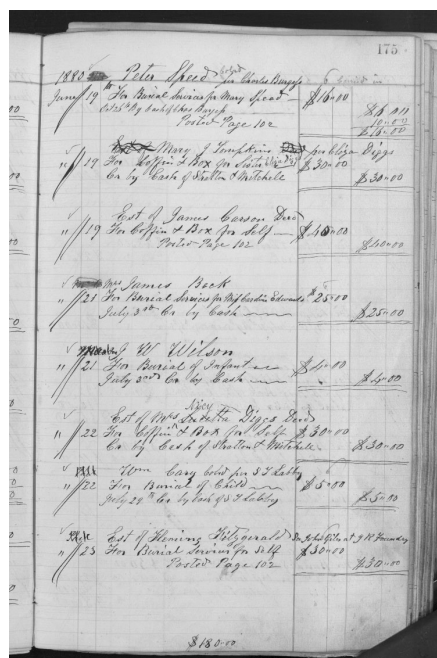 175
1880 Peter Speed Cold per Charles Burgess
June 19th For Burial Services for Mary Speed $16.00
by Cash of Chas
Posted Page 102
$16.00
Mary J Tompkins per Eliza Diggs
" 19 For Coffin & Box for Sister $30.00
Cr by Cash of Stratton & Mitchell $30.00
Est of James Carson Decd
" 19 For Coffin & Box for Self $40.00
Posted Page 102 $40.00
Mrs James Beck
" 21 For Burial Services for Caroline Edwards $25.00
July 3rd Cr by Cash $25.00
J W Wilson
" 21 For Burial of Infant $4.00
July 3rd Cr by Cash $4.00
Est of Mrs Diggs Decd
" 22 For Coffin & Box for Self $30.00
Cr by Cash of Stratton & Mitchell $30.00
Wm Cary Cold per S T
" 22 For Burial of Child $5.00
July 29th Cr by Cash of S T $5.00
Est of Fleming Fitzgerald
" 23 For Burial Services for Self $30.00
Posted Page 102 $30.00
$180.00